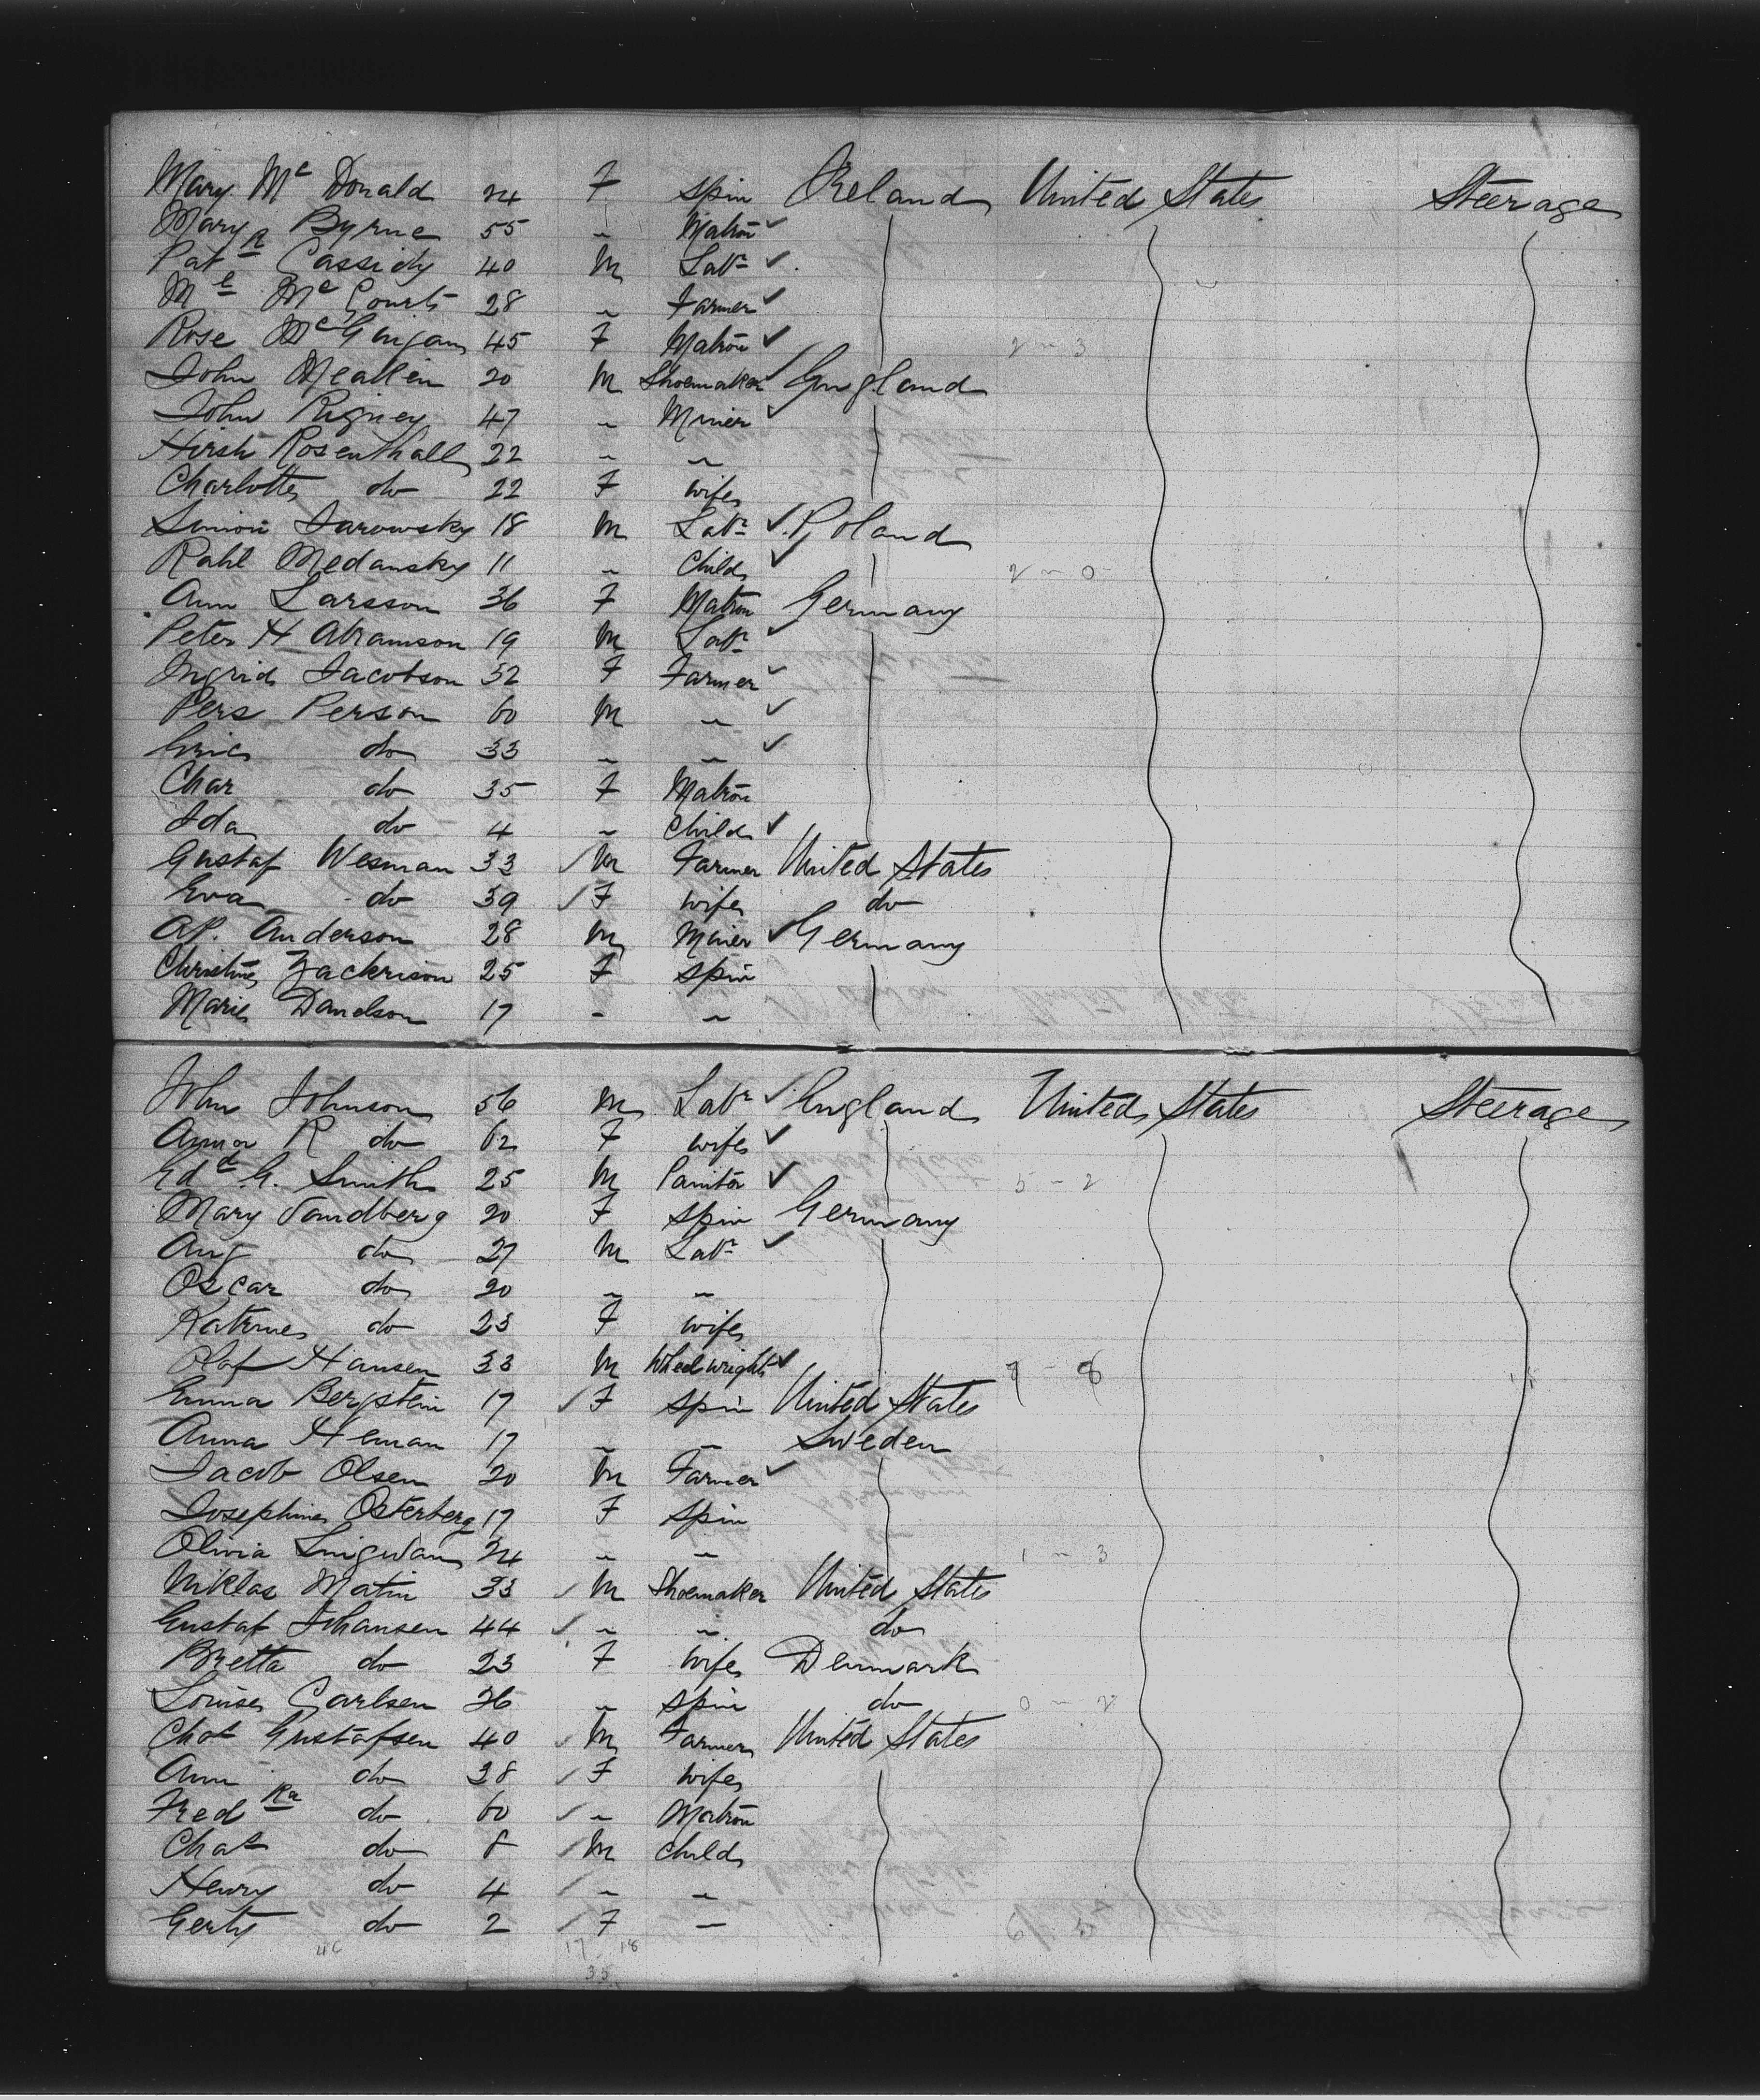 Mary Mc Donald 24 F Spin Ireland United States Steerage
Mary Byrne 55 " Matron ✓
Patk Cassidy 40 M Labr ✓
Ml Mc Court 28 " Farmer ✓
Rose McGuigan 45 F Matron ✓ 2 - 3
John Meakin 20 M Shoemaker ✓ England
John Rigney 47 " Miner ✓
Hirsh Rosenthall 22 " "
Charlotte do 22 F wife
Simon Jarowsky 18 M Labr ✓ Poland
Rahl Medansky 11 " Child ✓ 2 - 0
Ann Larsson 36 F Matron Germany
Peter H Abramson 19 M Labr ✓
Ingrid Jacobson 32 F Farmer ✓
Pers Person 60 M " ✓
Eric do 33 " " ✓
Char do 35 F Matron
Ida do 4 " Child ✓
Gustaf Wesman 33 ✓ M Farmer United States
Eva do 39 ✓ F wife do
AP. Anderson 28 M Miner ✓ Germany
Christine Zackrison 25 F Spin
Marie Danelson 17 - "
John Johnson 56 M Labr ✓ England United States Steerage
Anna R do 62 F wife ✓
Edd G. Smith 25 M Painter ✓ 5 - 2
Mary Sandberg 20 F Spin Germany
Aug do 27 M Labr ✓
Oscar do 20 " "
Katrine do 23 F wife
Olaf Hansen 33 M Wheelwright ✓ 7 - 8
Emma Bergstein 17 ✓ F Spin United States
Anna Heman 17 " " Sweden
Jacob Olsen 20 M Farmer ✓
Josephine Osterberg 17 F Spin
Olivia 24 " " 1 - 3
Niklas Matin 33 ✓ M Shoemaker United States
Gustaf Johansen 44 ✓ " " do
Bretta do 23 F Wife Denmark
Louise Carlsen 26 " Spin do 0 - 2
Chas Gustafsen 40 ✓ M Farmer United States
Ann do 38 ✓ F wife
Fredka do 60 ✓ " Matron
Chas do 8 ✓ M Child
Henry do 4 ✓ " "
Gerty do 2 ✓ F "
46 17 18
35